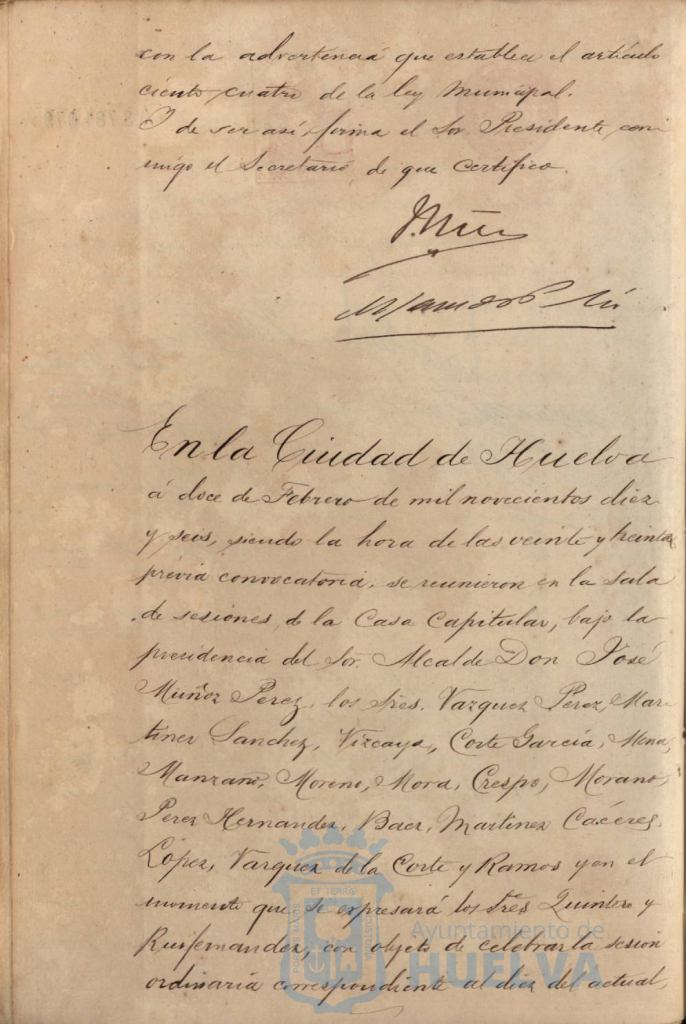 con la advertencia que establece el artículo
ciento cuatro de la ley Municipal.
Y de ser así, firma el Sor. Presidente, con-
migo el Secretario de que certifico.
En la Ciudad de Huelva
á doce de Febrero de mil novecientos diez
y seis, siendo la hora de las veinte y treinta
prévia convocatoria, se reunieron en la sala
de sesiones de la Casa Capitular, bajo la
presidencia del Sor. Alcalde Don José
Muñoz Perez, los Sres. Vazquez Perez, Mar-
tinez Sanchez, Vizcaya, Corte García, Mena,
Manzano, Moreno, Mora, Crespo, Morano,
Perez Hernandez, Baez, Martinez Cáceres,
López, Vazquez de la Corte y Ramos y en el
momento que se expresará los Sres Quintero y
Ruifernandez, con objeto de celebrar la sesion
ordinaria correspondiente al diez del actual,
Ayuntamiento de
HUELVA